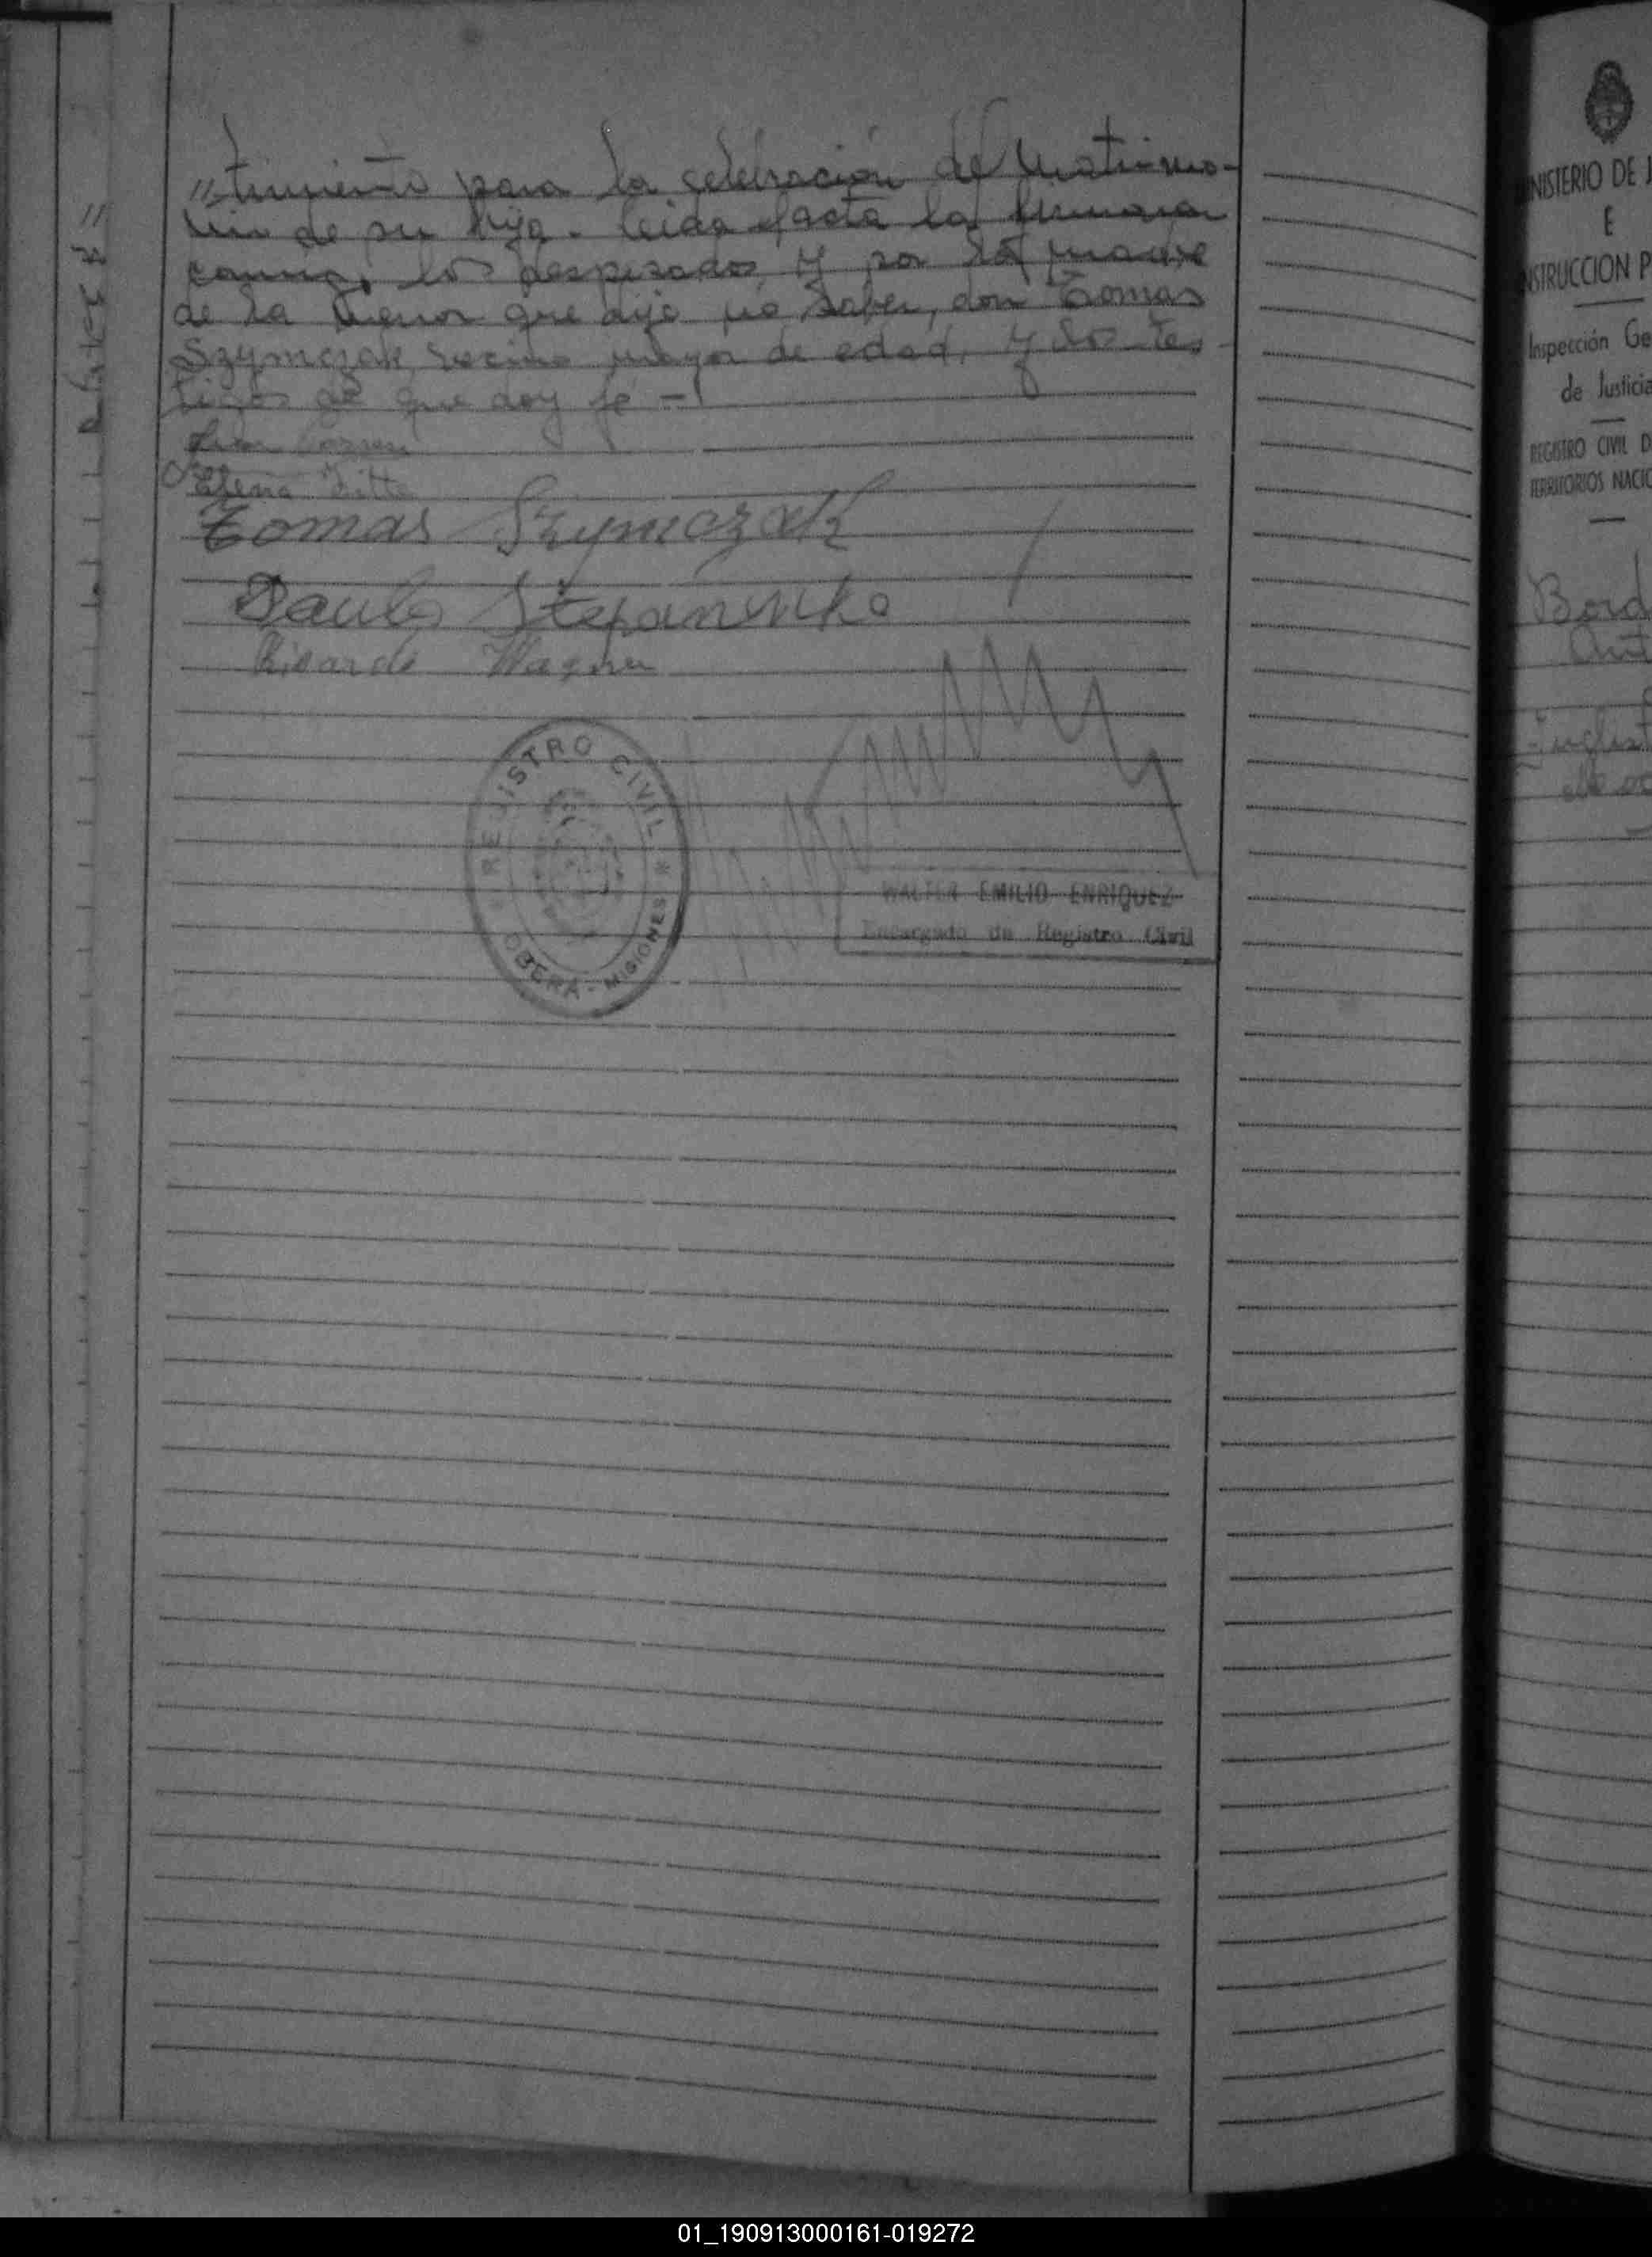 "timiento para la celebración del matrimo-
nio de su hija. Leida el acta la firmaron
conmigo, los desposados y por la madre
de la menor que dijo no saber, don Tomas
Szymczak, vecino mayor de edad, y los tes-
tigos de que doy fé -
Elena Ditto
Tomas Szymczak
Paulo Stepanenko
Ricardo Wagner
REJISTRO CIVIL
OBERÁ - MISIONES
WALTER EMILIO ENRIQUEZ
Encargado de Registro Civil
MINISTERIO DE J
E
INSTRUCCION P
Inspección Ge
de Justicia
REGISTRO CIVIL D
TERRITORIOS NACIO
Bord
01_190913000161-019272